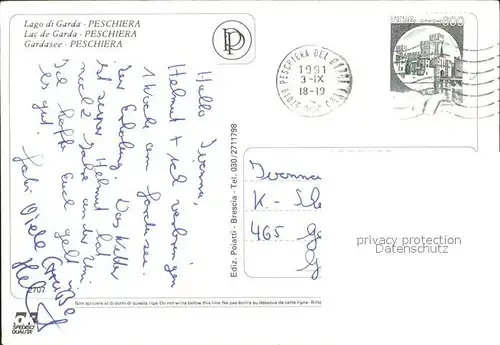 Lago di Garda - PESCHIERA
Lac de Garda - PESCHIERA
Gardasee - PESCHIERA
PESCHIERA DEL GARDA
1991
3-IX
18-19
Hallo
Helmut + ich verbringen
1 Woche am Gardasee
zur Erholung. Das Wetter
ist super. Helmut hat
noch 2 Jahre an der Uni.
Ich hoffe Euch geht
es gut.
Viele Grüße
Ediz. Poiatti - Brescia - Tel. 030/2711798
K-
465
privacy protection
Datenschutz
2707
Non scrivere al di sotto di questa riga. Do not write below this line. Ne pas écrire au dessous de cette ligne. Bitte